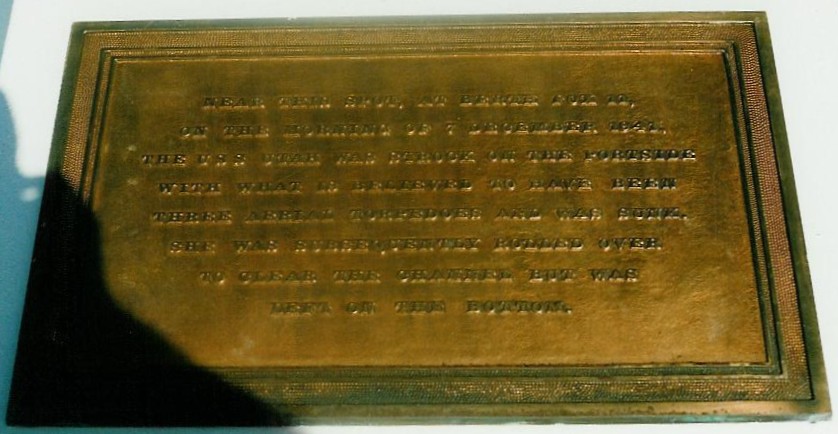 NEAR THIS SPOT, AT BERTH FOX 11,
ON THE MORNING OF 7 DECEMBER 1941,
THE USS UTAH WAS STRUCK ON THE PORTSIDE
WITH WHAT IS BELIEVED TO HAVE BEEN
THREE AERIAL TORPEDOES AND WAS SUNK.
SHE WAS SUBSEQUENTLY ROLLED OVER
TO CLEAR THE CHANNEL BUT WAS
LEFT ON THE BOTTOM.